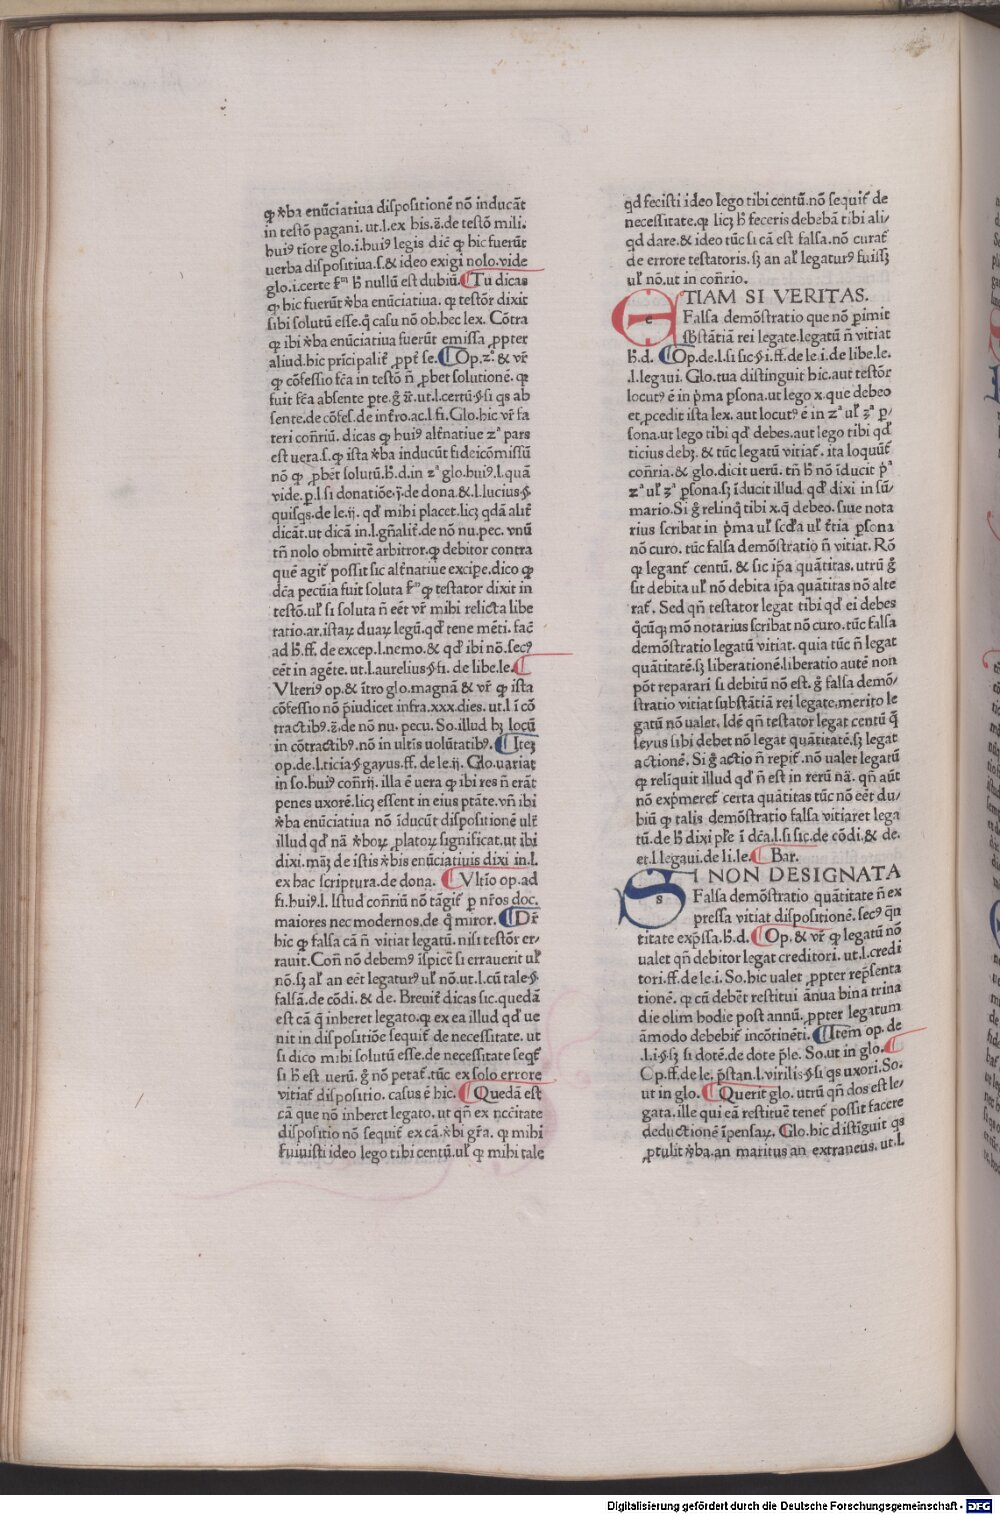 ꝙ v̾ba enũciatiua dispositionẽ nõ inducãt
in testõ pagani. ut.l.ex his.ã.de testõ mili.
huiꝰ tiore glo.i.huiꝰ legis dic̃ ꝙ hic fuerũt
uerba dispositiua.s.& ideo exigi nolo.vide
glo.i.certe ẜm h̃ nullũ est dubiũ. Tu dicas
ꝙ hic fuerũt v̾ba enũciatiua. ꝙ testõr dixit
sibi solutũ esse.q̃ casu nõ ob.hec lex. Cõtra
ꝙ ibi v̾ba enũciatiua fuerũt emissa ꝓpter
aliud.hic prĩcipalit̃ ꝓpt̃ se. Op.2ᵒ. & vr̃
ꝙ cõfessio fc̃a in testõ ñ ꝓbet solutionẽ. ꝙ
fuit fc̃a absente ꝑte.g̃ ãr.ut.l.certũ.§.si qs ab
sente.de cõfes̃.de int̃ro.ac.l fi. Glo.hic vr̃ fa
teri conr̃iũ. dicas ꝙ huiꝰ alt̃natiue 2ᵃ pars
est uera.s.ꝙ ista v̾ba inducũt fideicõmissũ
nõ ꝙ ꝓbẽt solutũ.h̃.d.in 2ᵃ glo.huiꝰ.l.quã
vide.ꝑ.l si donatiõe.j̃.de dona.&.l.lucius.§
quisqs.de le.ij. qd̃ mihi placet.licꝫ qdã alit̃
dicãt.ut dicã in.l.gñalit̃.de nõ nu.pec. vnũ
tñ nolo obmittẽ arbitror.ꝙ debitor contra
quẽ agit̃ possit sic alt̃natiue excipe.dico ꝙ
dc̃a pecũia fuit soluta ẜm ꝙ testator dixit in
testõ.ul̃ si soluta ñ eẽt vr̃ mihi relicta libe
ratio.ar.istaꝝ duaꝝ legũ.qd̃ tene mẽti. fac̃
ad h̃.ff.de excep.l.nemo.& qd̃ ibi nõ.secꝰ
eẽt in agẽte. ut.l.aurelius.§.fi. de libe.le.
Vlteriꝰ op.& ĩtro glo.magnã & vr̃ ꝙ ista
cõfessio nõ p̃iudicet infra.xxx.dies. ut.l ĩ cõ
tractibꝰ.ã.de nõ nu. pecu. So.illud hꝫ locũ
in cõtractibꝰ.nõ in ultĩs uolũtatibꝰ. Iteꝫ
op.de.l.ticia.§.gayus.ff. de le.ij. Glo.uariat
in so.huiꝰ conr̃ij. illa ẽ uera ꝙ ibi res ñ erãt
penes uxorẽ.licꝫ essent in eius ptãte.vñ ibi
v̾ba enũciatiua nõ ĩducũt dispositionẽ ult̃
illud qd̃ nã v̾boꝝ ꝓlatoꝝ significat.ut ibi
dixi.maꝫ de istis v̾bis enũciatiuis dixi in.l.
ex hac scriptura.de dona. Vltĩo op.ad
fi.huiꝰ.l. Istud conr̃iũ nõ tãgit̃ ꝑ nr̃os doc.
maiores nec modernos.de q̃ miror. Dr̃
hic ꝙ falsa cã ñ vitiat legatũ. nisi testõr er/
rauit. Coñ nõ debemꝰ ĩspicẽ si errauerit ul̃
nõ.sꝫ al̃ an eẽt legaturꝰ ul̃ nõ.ut.l.cũ tale.§
falsã.de cõdi. & de. Breuit̃ dicas sic.quedã
est cã q̃ inheret legato.ꝙ ex ea illud qd̃ ue
nit in dispositiõe sequit̃ de necessitate. ut
si dico mihi solutũ esse.de necessitate seqt̃
si h̃ est uerũ. g̃ nõ petat̃.tũc ex solo errore
vitiat̃ dispositio. casus ẽ hic. Quedã est
cã que nõ inheret legato. ut qñ ex nec̃itate
dispositio nõ sequit̃ ex cã.v̾bi gr̃a. ꝙ mihi
ẜuiuisti ideo lego tibi centũ.ul̃ ꝙ mihi tale
qd fecisti ideo lego tibi centũ.nõ sequit̃ de
necessitate.ꝙ licꝫ h̃ feceris debebã tibi ali/
qd dare.& ideo tũc si cã est falsa.nõ curat̃
de errore testatoris.sꝫ an al̃ legaturꝰ fuissꝫ
ul̃ nõ.ut in conr̃io.
ETIAM SI VERITAS.
Falsa demõstratio que nõ ꝑimit
sb̃stãtiã rei legate.legatũ ñ vitiat
h̃.d. Op.de.l.si sic.§.i.ff.de le.i.de libe.le.
.l.legaui. Glo.tua distinguit hic.aut testõr
locutꝰ ẽ in p̃ma ꝑsona.ut lego x.que debeo
et ꝓcedit ista lex. aut locutꝰ ẽ in 2ᵃ ul̃ 3ᵃ ꝑ/
sona.ut lego tibi qd̃ debes.aut lego tibi qd̃
ticius debꝫ. & tũc legatũ vitiat̃. ita loquũt̃
conr̃ia.& glo.dicit uerũ. tñ h̃ nõ ĩducit pᵃ
2ᵃ ul̃ 3ᵃ ꝑsona.sꝫ ĩducit illud qd̃ dixi in sũ/
mario.Si g̃ relinq̃ tibi x.q̃ debeo. siue nota
rius scribat in p̃ma ul̃ scd̃a ul̃ t̃tia ꝑsona
nõ curo. tũc falsa demõstratio ñ vitiat. Rõ
ꝙ legant̃ centũ. & sic ip̃a quãtitas. utrũ g̃
sit debita ul̃ nõ debita ip̃a quãtitas nõ alte
rat̃. Sed qñ testator legat tibi qd̃ ei debes
q̃cũqꝫ mõ notarius scribat nõ curo.tũc falsa
demõstratio legatũ vitiat. quia tũc ñ legat
quãtitatẽ.sꝫ liberationẽ.liberatio autẽ non
põt reparari si debitũ nõ est. g̃ falsa demõ/
stratio vitiat substãtiã rei legate.merito le
gatũ nõ ualet. Idẽ qñ testator legat centũ q̃
seyus sibi debet nõ legat quãtitatẽ.sꝫ legat
actionẽ. Si g̃ actio ñ repit̃.nõ ualet legatũ
ꝙ relĩquit illud qd̃ ñ est in rerũ nã. qñ aũt
nõ exp̃meret̃ certa quãtitas tũc nõ eẽt du/
biũ ꝙ talis demõstratio falsa vitiaret lega
tũ.de h̃ dixi pl̃e ĩ dc̃a.l.si sic.de cõdi.& de.
et.l legaui.de li.le. Bar.
SI NON DESIGNATA
Falsa demõstratio quãtitate ñ ex
pressa vitiat dispositionẽ. secꝰ qñ
titate exp̃ssa.h̃.d. Op.& vr̃ ꝙ legatũ nõ
ualet qñ debitor legat creditori. ut.l.credi
tori.ff.de le.i. So.hic ualet ꝓpter rep̃senta
tionẽ. ꝙ cũ debẽt restitui ãnua bina trina
die olim hodie post annũ.ꝓpter legatum
ãmodo debebit̃ incõtinẽti. Item op.de
.l.i.§.sꝫ si dotẽ.de dote p̃le. So.ut in glo.
Op.ff.de le.p̃stan.l.virilis.§.si qs uxori.So.
ut in glo. Querit glo.utrũ qñ dos est le/
gata.ille qui eã restituẽ tenet̃ possit facere
deductionẽ ĩpensaꝝ. Glo.hic distĩguit qs
ꝓtulit v̾ba.an maritus an extraneus.ut.l.
Digitalisierung gefördert durch die Deutsche Forschungsgemeinschaft - DFG